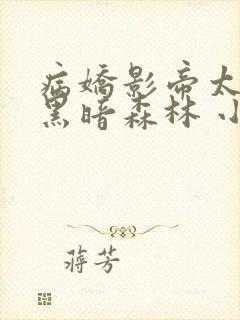 病嬌影帝太
黑暗森林 小
蔣芳